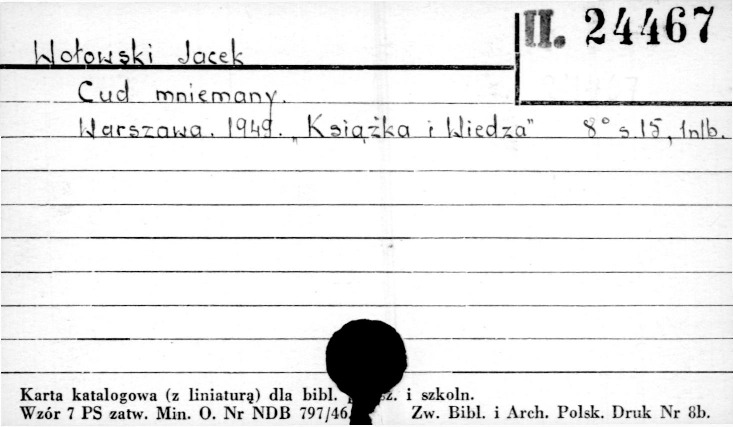 II. 24467
Wołowski Jacek
Cud mniemany.
Warszawa. 1949. „Książka i Wiedza" 8° s.15, 1nlb.
Karta katalogowa (z liniaturą) dla bibl. i szkoln.
Wzór 7 PS zatw. Min. O. Nr NDB 797/46 Zw. Bibl. i Arch. Polsk. Druk Nr 8b.